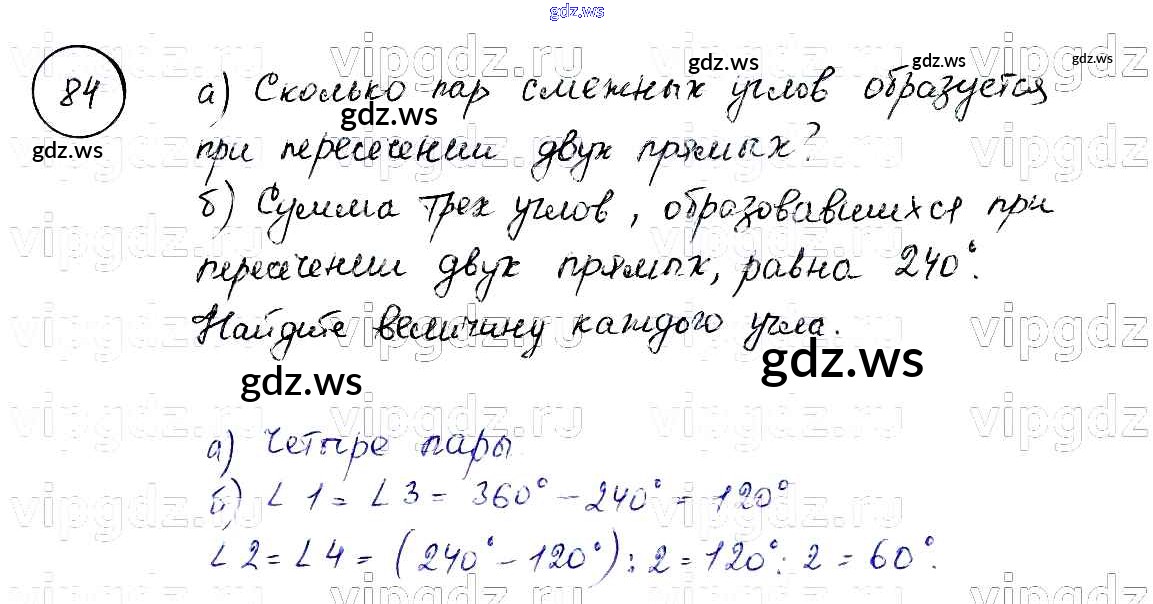 gdz.ws
84
а) Сколько пар смежных углов образуется
при пересечении двух прямых?
б) Сумма трех углов, образовавшихся при
пересечении двух прямых, равна 240°.
Найдите величину каждого угла.
а) Четыре пары
б) ∠1 = ∠3 = 360° - 240° = 120°
∠2 = ∠4 = (240° - 120°) : 2 = 120° : 2 = 60°.
gdz.ws
gdz.ws
gdz.ws
gdz.ws
gdz.ws
gdz.ws
gdz.ws
gdz.ws
vipgdz.ru